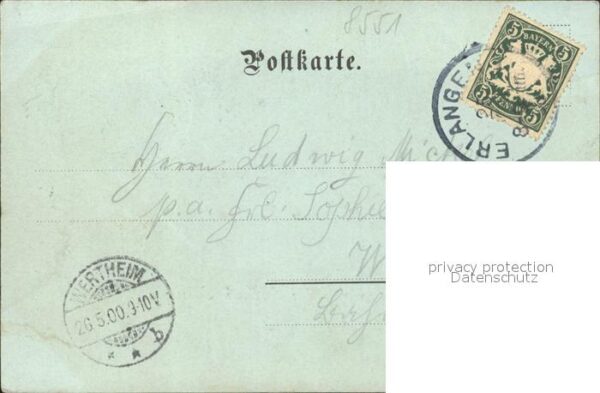 8551
Postkarte.
BAYERN
5 5
5 5
PFENNIG
ERLANGEN
Herrn Ludwig
p. a. Frl. Sophie
W
WERTHEIM
26.5.00.9-10V.
b
privacy protection
Datenschutz